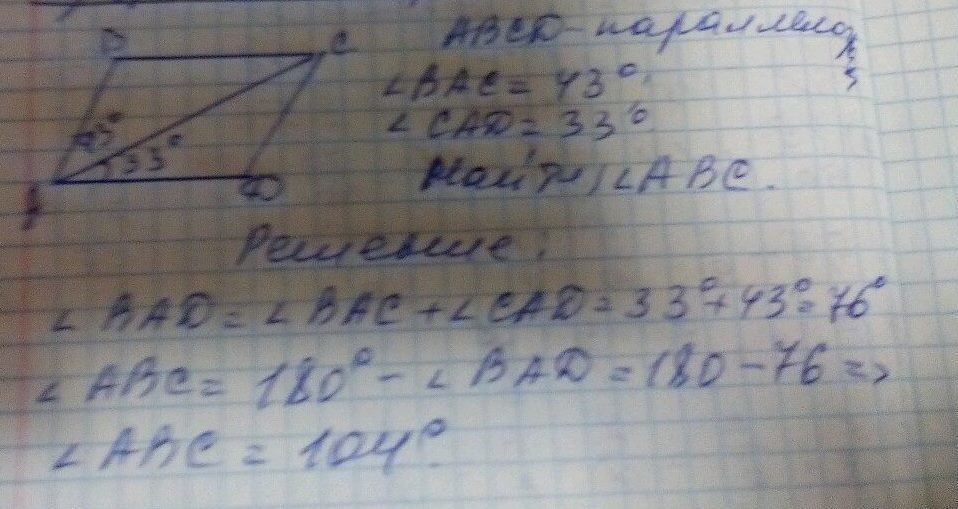 ABCD - параллелогр
D C
∠BAC = 43°
∠CAD = 33°
43° 33°
Найти ∠ABC.
D
Решение:
∠BAD = ∠BAC + ∠CAD = 33° + 43° = 76°
∠ABC = 180° - ∠BAD = 180 - 76 =>
∠ABC = 104°.